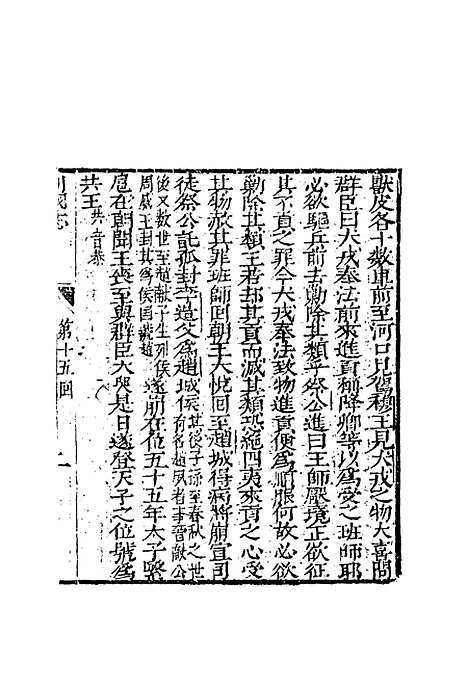 獸皮各十數車前至河口見駕穆王見犬戎之物大喜問
群臣曰犬戎奉法前來進貢稱降卿等以為受之班師耶
必欲驅兵前去勦除其類乎祭公進曰王師壓境正欲征
其不貢之罪今犬戎奉法致物進貢便為順服何故必欲
勦除其類王若却其貢而滅其類恐絕四夷來貢之心受
其物赦其罪班師回朝王大悅回至趙城得病將崩宣司
徒祭公託孤封李造父為趙城侯其後子孫至春秋之世有名趙夙者事晉獻公
後又數世至趙獻子生列侯周威王封其為侯國號趙遂崩在位五十五年太子緊
扈在朝聞王喪至與群臣大哭是日遂登天子之位號為
共王共音恭
列國志
第十五回
二